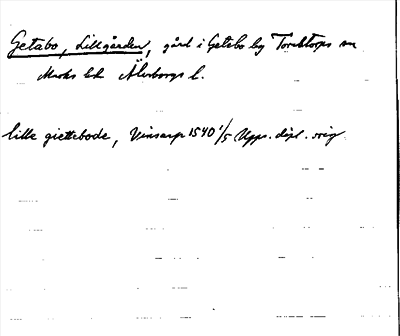 Getabo, Lillgården, gård i Getabo by Torestorps sn
Marks hd Älvsborgs l.
lille giettebode, Vinsarp 1540 1/5 Upps. dipl. orig.